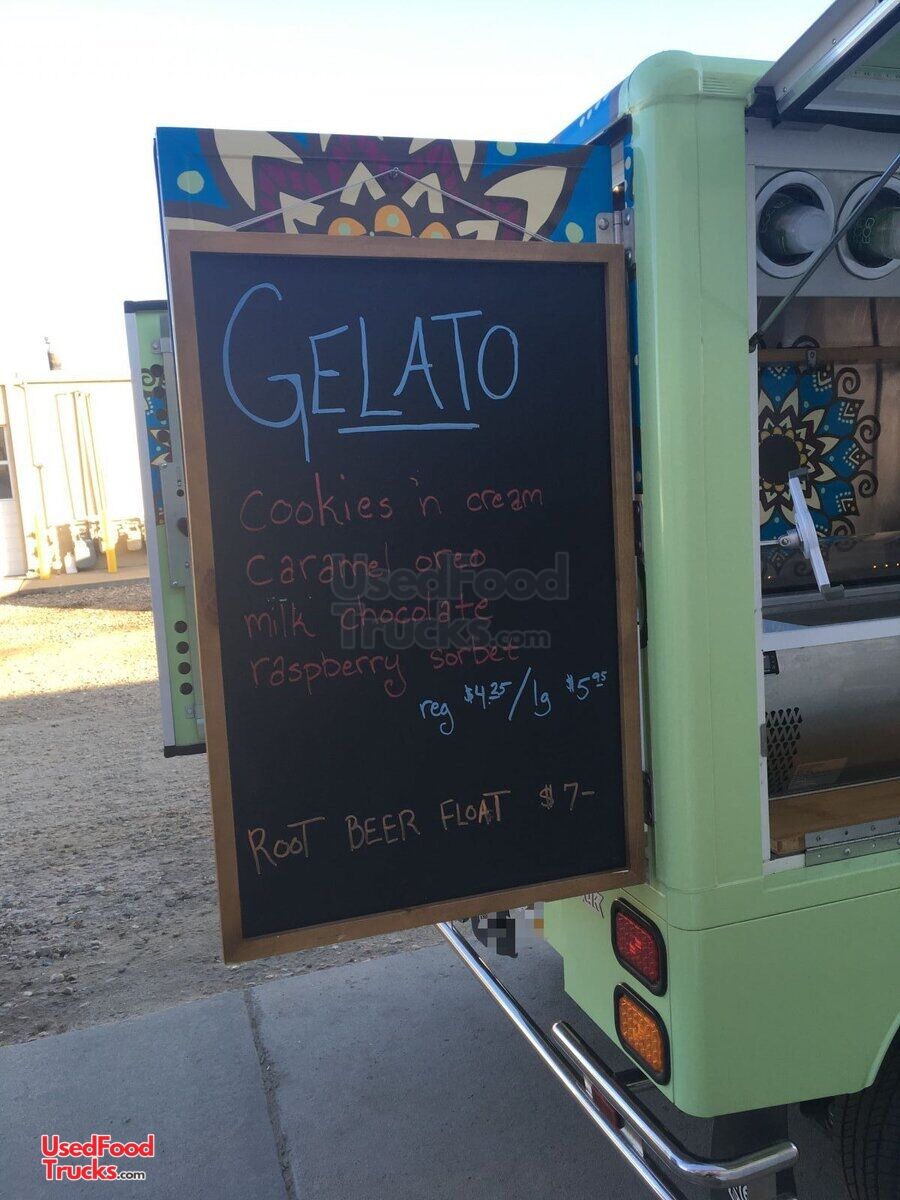 GELATO
Cookies 'n cream
caramel oreo
milk chocolate
raspberry sorbet
reg $4.25/lg $5.95
ROOT BEER FLOAT $7-
UsedFood
Trucks.com
UsedFood
Trucks.com